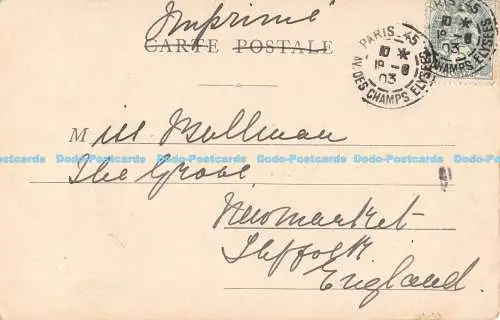 Imprimé
CARTE POSTALE
PARIS_45
10 *
18 - 8
03
AV. DES CHAMPS ELYSEES
PARIS_45
10 *
18 - 8
03
AV. DES CHAMPS ELYSEES
Miss Wellman
The Grove
Newmarket
Suffolk
England.
Dodo-Postcards Dodo-Postcards Dodo-Postcards Dodo-Postcards Dodo-Postcards Dodo-Postcards